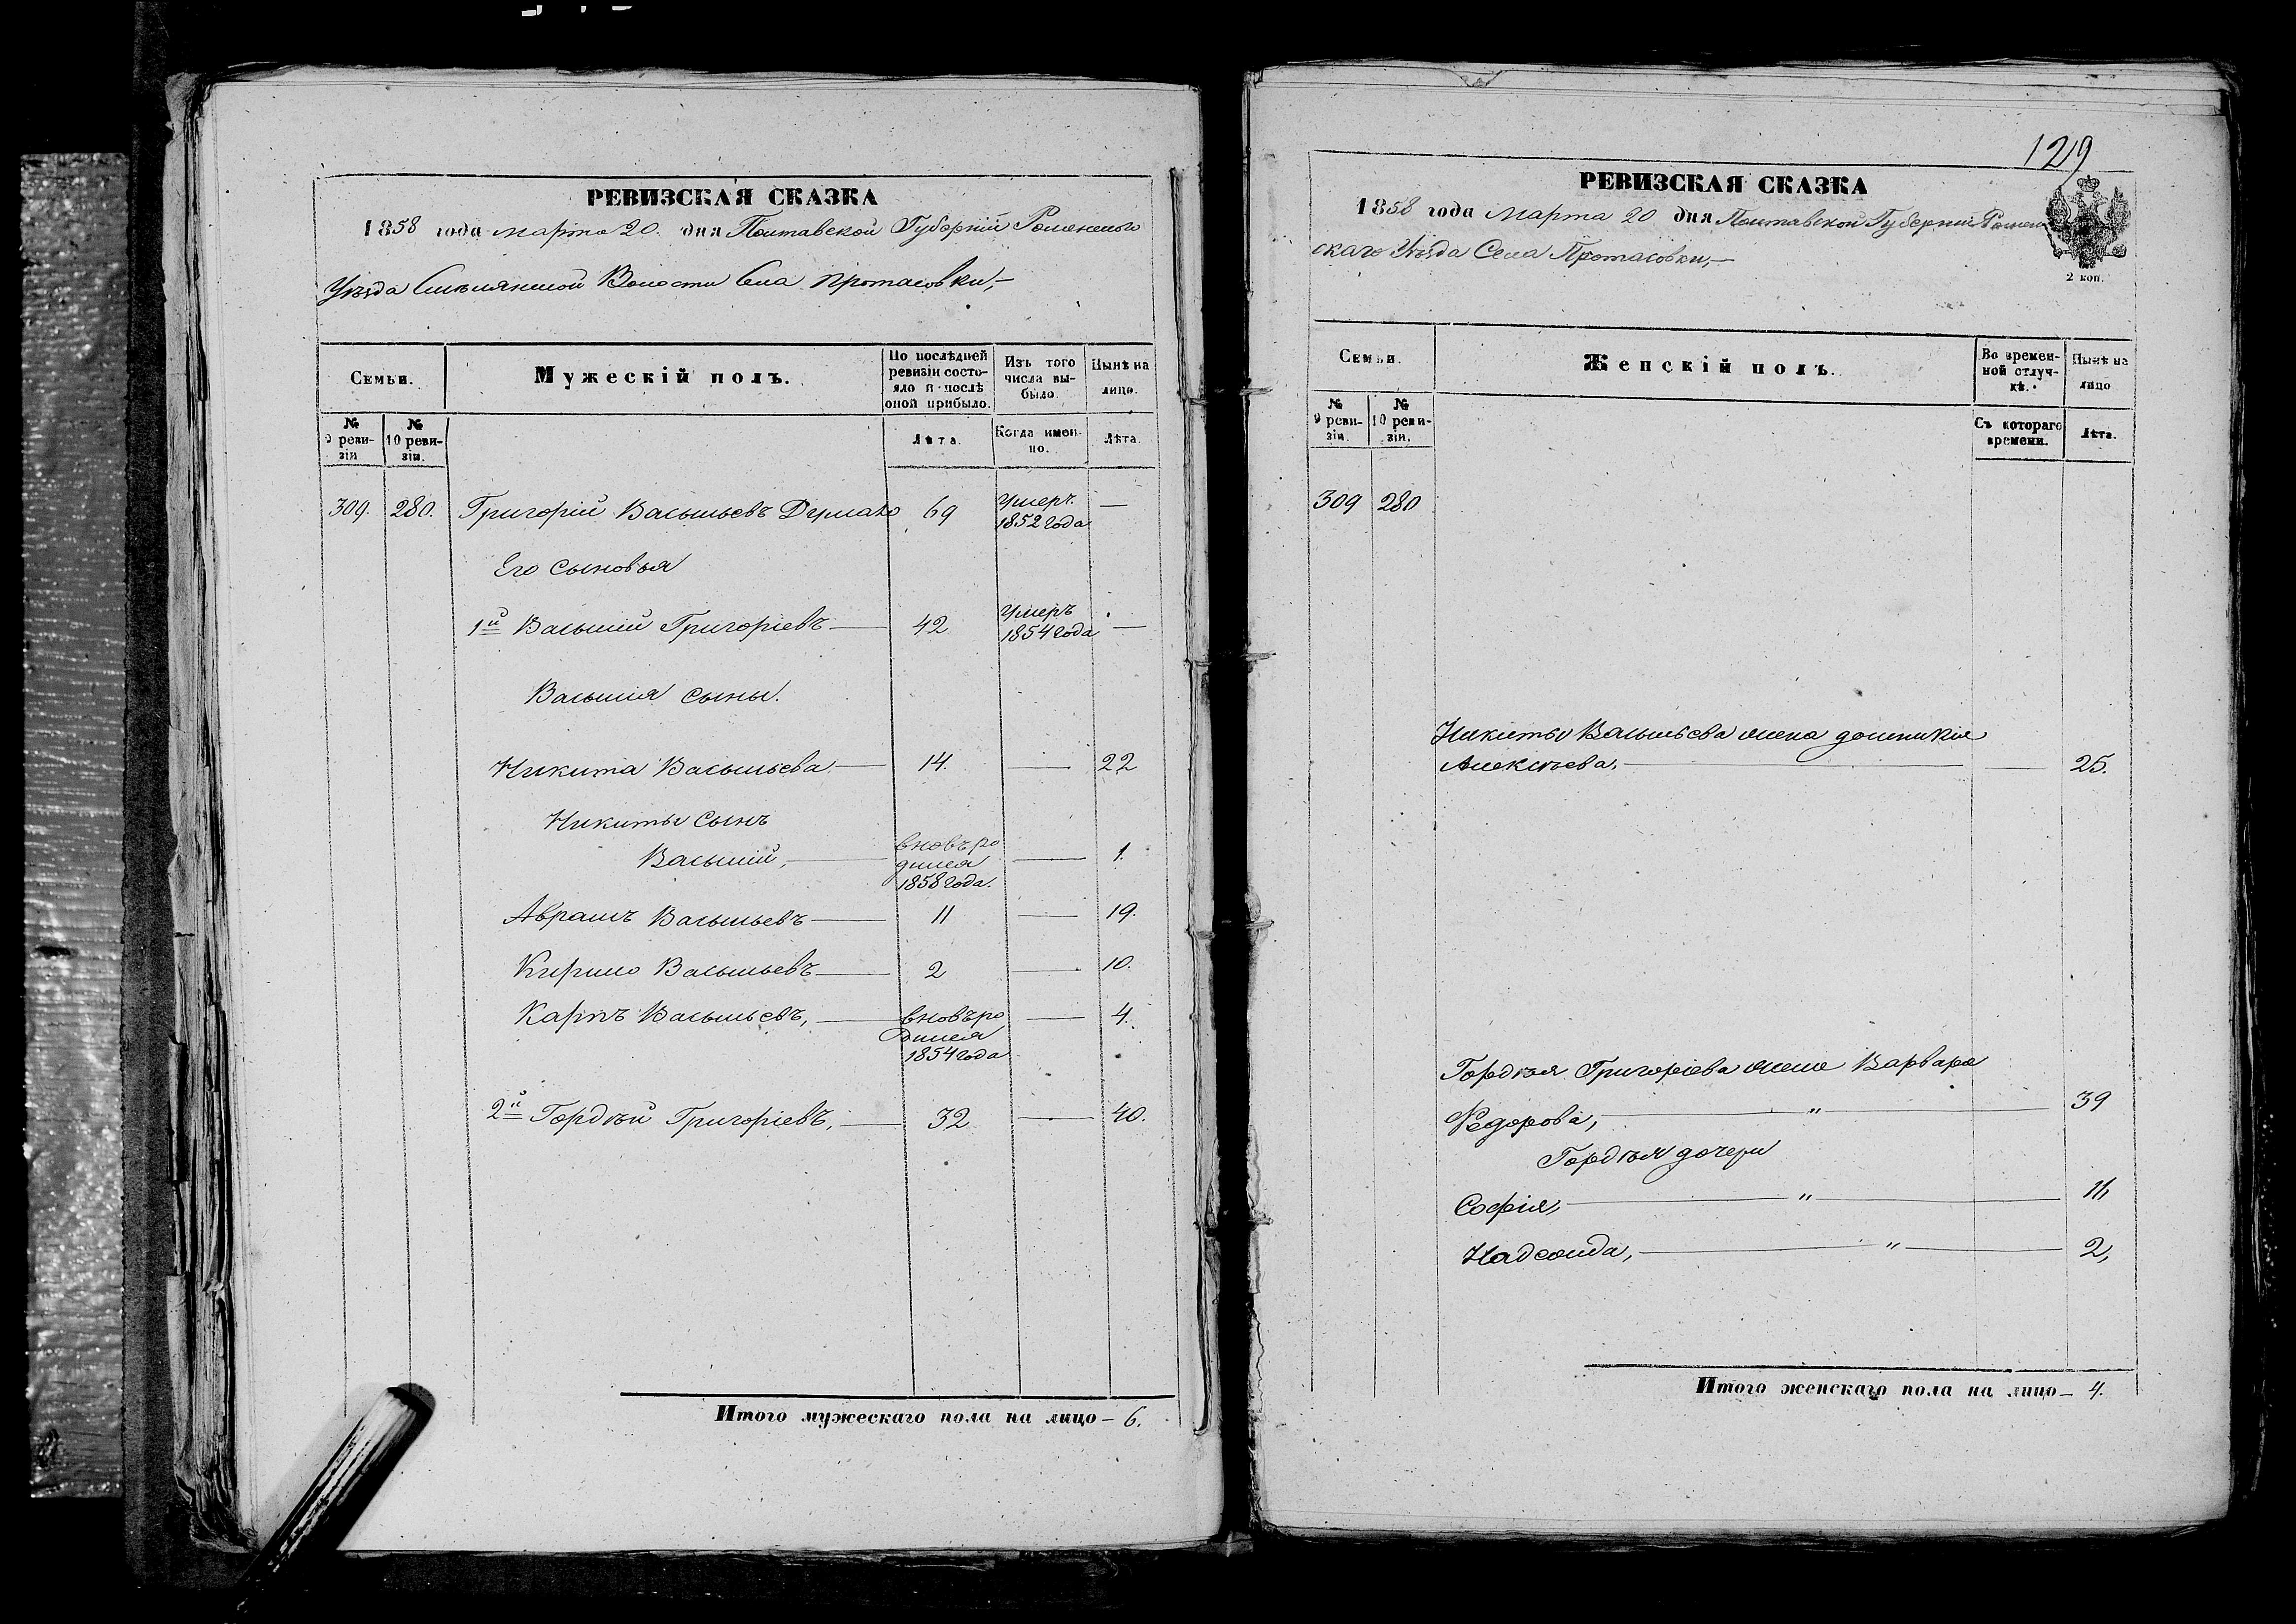 РЕВИЗСКАЯ СКАЗКА
1858 года марта 20 дня Полтавской Губерніи Роменского
Уѣзда Смѣлянской Волости Села Протасовки,—
Семьи.
Мужескій полъ.
По послѣдней ревизіи состояло и послѣ оной прибыло.
Изъ того числа выбыло.
Нынѣ на лицо.
№ 9 ревизіи
№ 10 ревизіи.
Лѣта.
Когда именно.
Лѣта.
309. 280. Григорій Васильевъ 69 умеръ 1852 года —
Его сыновья
1й Василий Григоріевъ — 42 умеръ 1854 года —
Василія сыны.
Никита Васильева — 14. — 22
Никиты сынъ
Василій, — вновь родился 1858 года. — 1.
Аврамъ Васильевъ — 11 — 19.
Кирило Васильевъ — 2 — 10.
Карпъ Васильевъ, — вновь родился 1854 года — 4.
2й Гордѣй Григоріевъ, — 32 — 40.
Итого мужескаго пола на лицо — 6.
129
РЕВИЗСКАЯ СКАЗКА
1858 года марта 20 дня Полтавской Губерніи Ромен
скаго Уѣзда Села Протасовки,—
2 коп.
Семьи.
Женскій полъ.
Во временной отлучкѣ.
Нынѣ на лицо
№ 9 ревизіи.
№ 10 ревизіи.
Съ котораго времени.
Лѣта.
309 280
Никиты Васильева жена Домникія
Алексѣева, — 25.
Гордѣя Григоріева жена Варвара
Федорова, — " — 39
Гордѣя дочери
Софія, — " — 11,
Надежда, — " — 2,
Итого женскаго пола на лицо — 4.